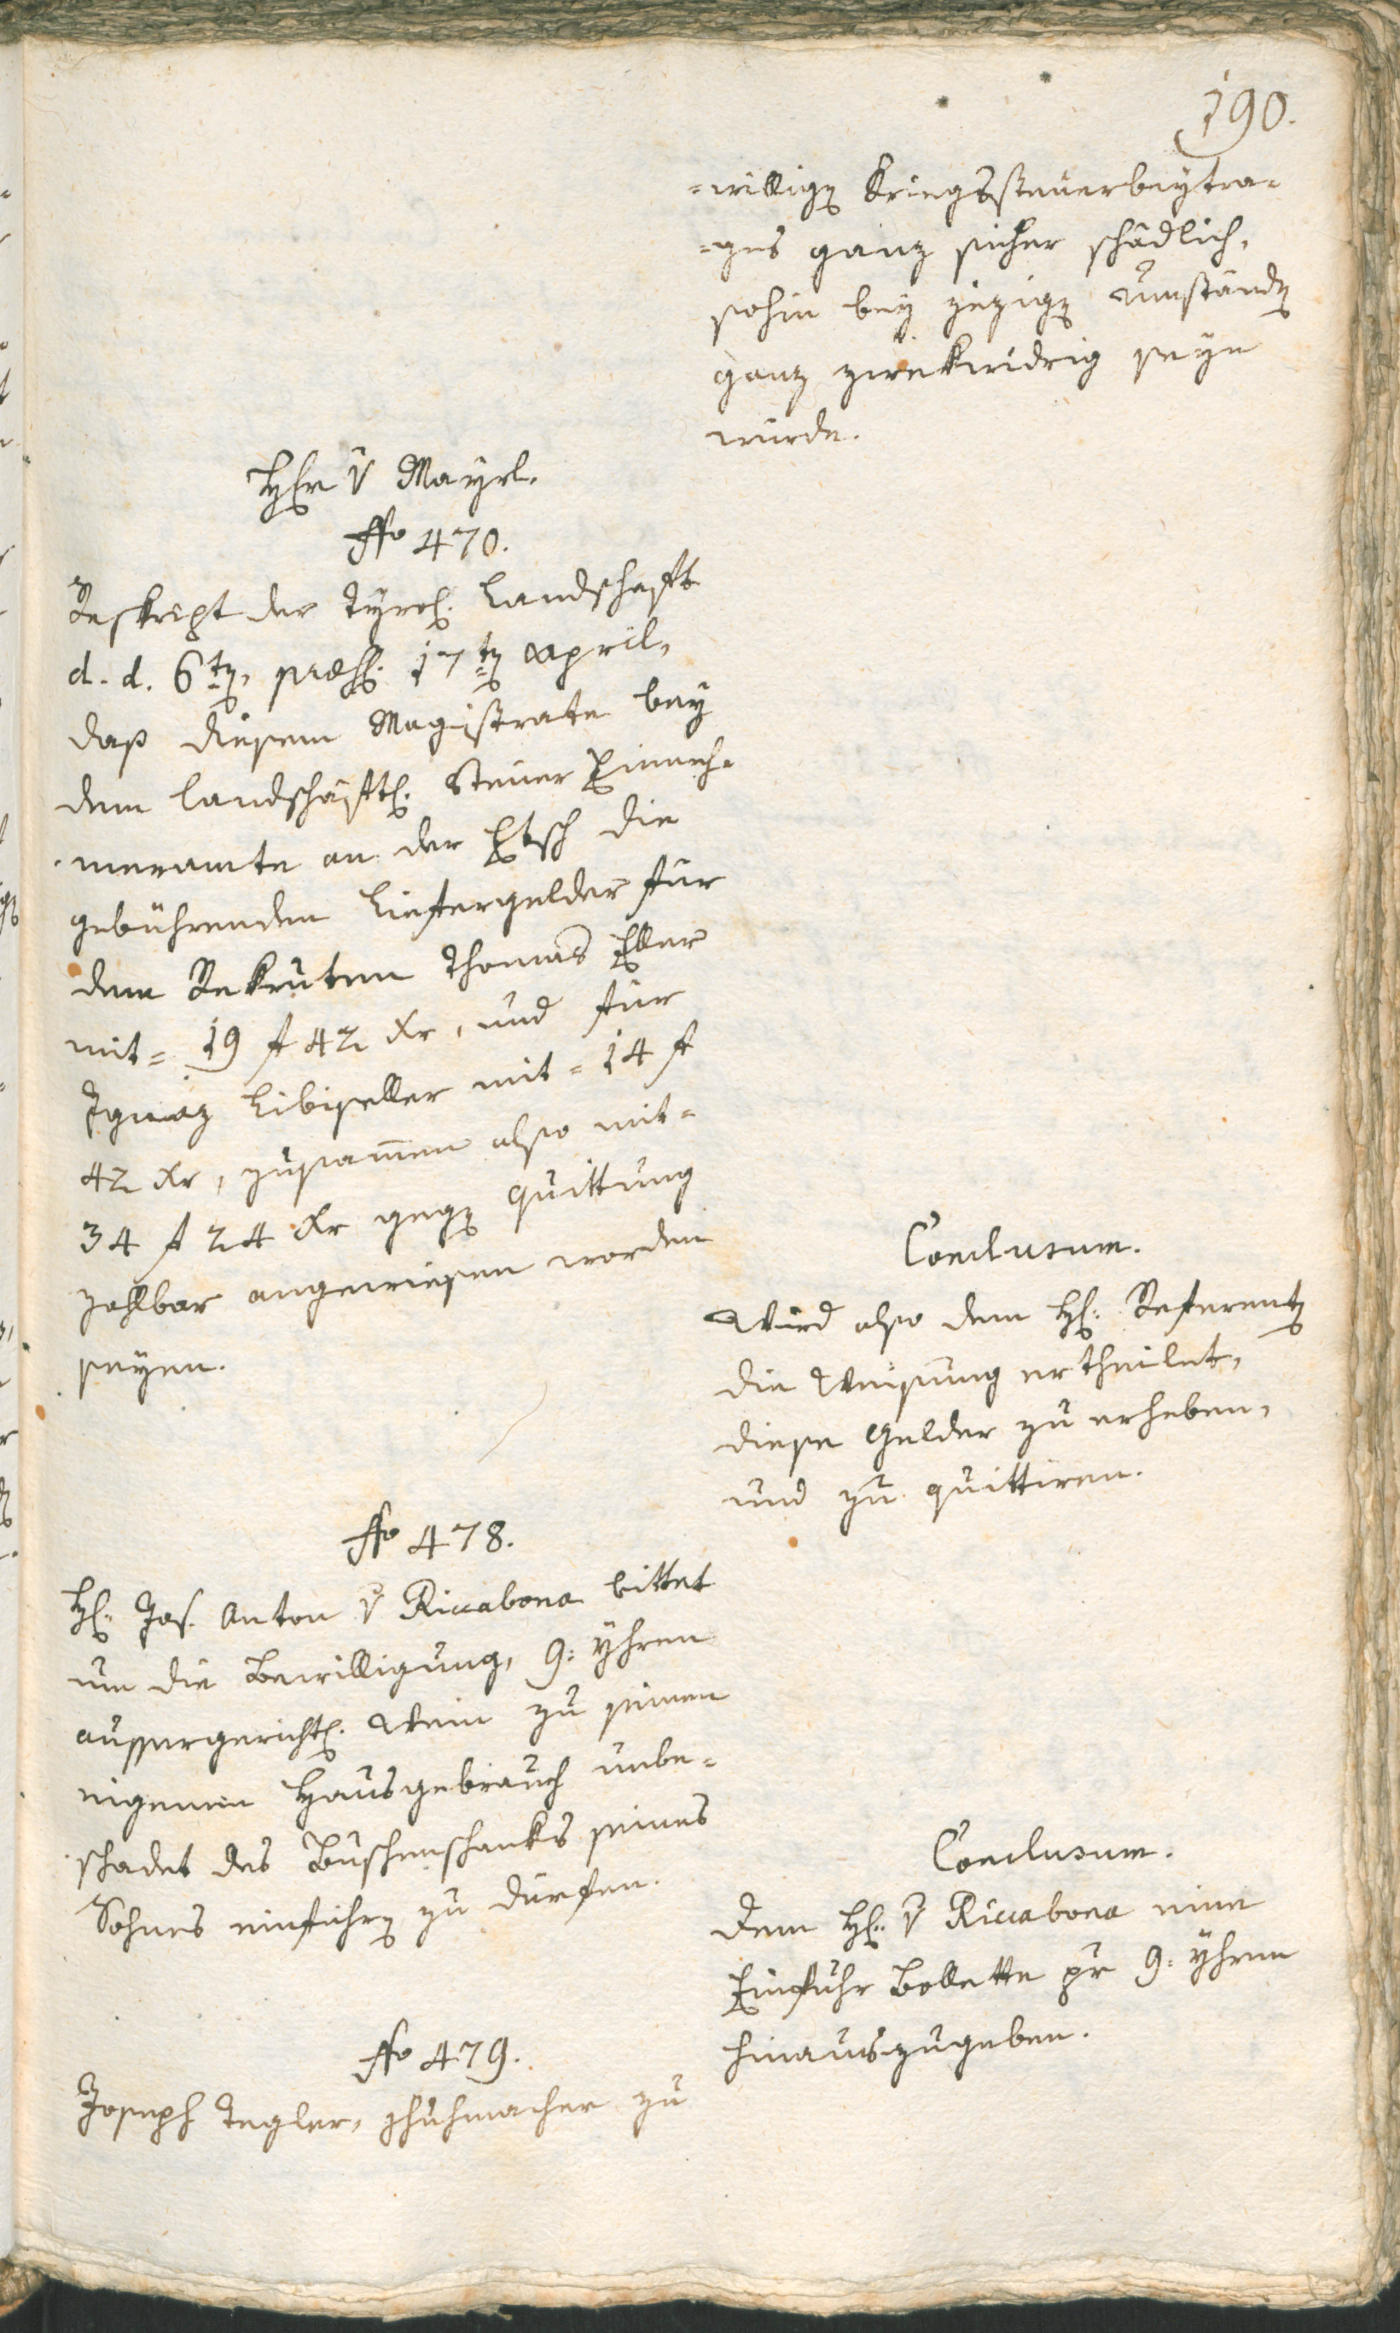 190.
-willigen Kriegssteuerbeytra-
-ges ganz sicher schädlich,
sohin bey jezigen Umständen
ganz zwekwidrig seyn
würde.
Herr v Mayrl.
No 470.
Reskript der Tyrol. Landschaft
d. d. 6ten, præs. 17ten April,
daß diesem Magistrate bey
dem landschäftl. Steuer Einneh-
meramte an der Etsch die
gebührenden Liefergelder für
dem Rekruten Thomas Eller
mit = 19 f 42 xr, und für
Ignaz Libiseller mit = 14 f
42 xr, zusammen also mit =
34 f 24 xr gegen Quittung
zahlbar angewiesen worden
seyen.
Conclusum.
Wird also dem H. Referenten
die Weisung ertheilet,
diese Gelder zu erheben,
und zu quittiren.
No 478.
H. Jos. Anton v Riccabona bittet
um die Bewilligung, 9: Yhren
aussergerichtl. Wein zu seinen
eigenen Hausgebrauch unbe-
schadet des Buschenschanks seines
Sohnes einführen zu dürfen.
Conclusum.
Dem H. v Riccabona eine
Einfuhr Bollette pr 9: Yhren
hinauszugeben.
No 479.
Joseph Tegler, Schuhmacher zu